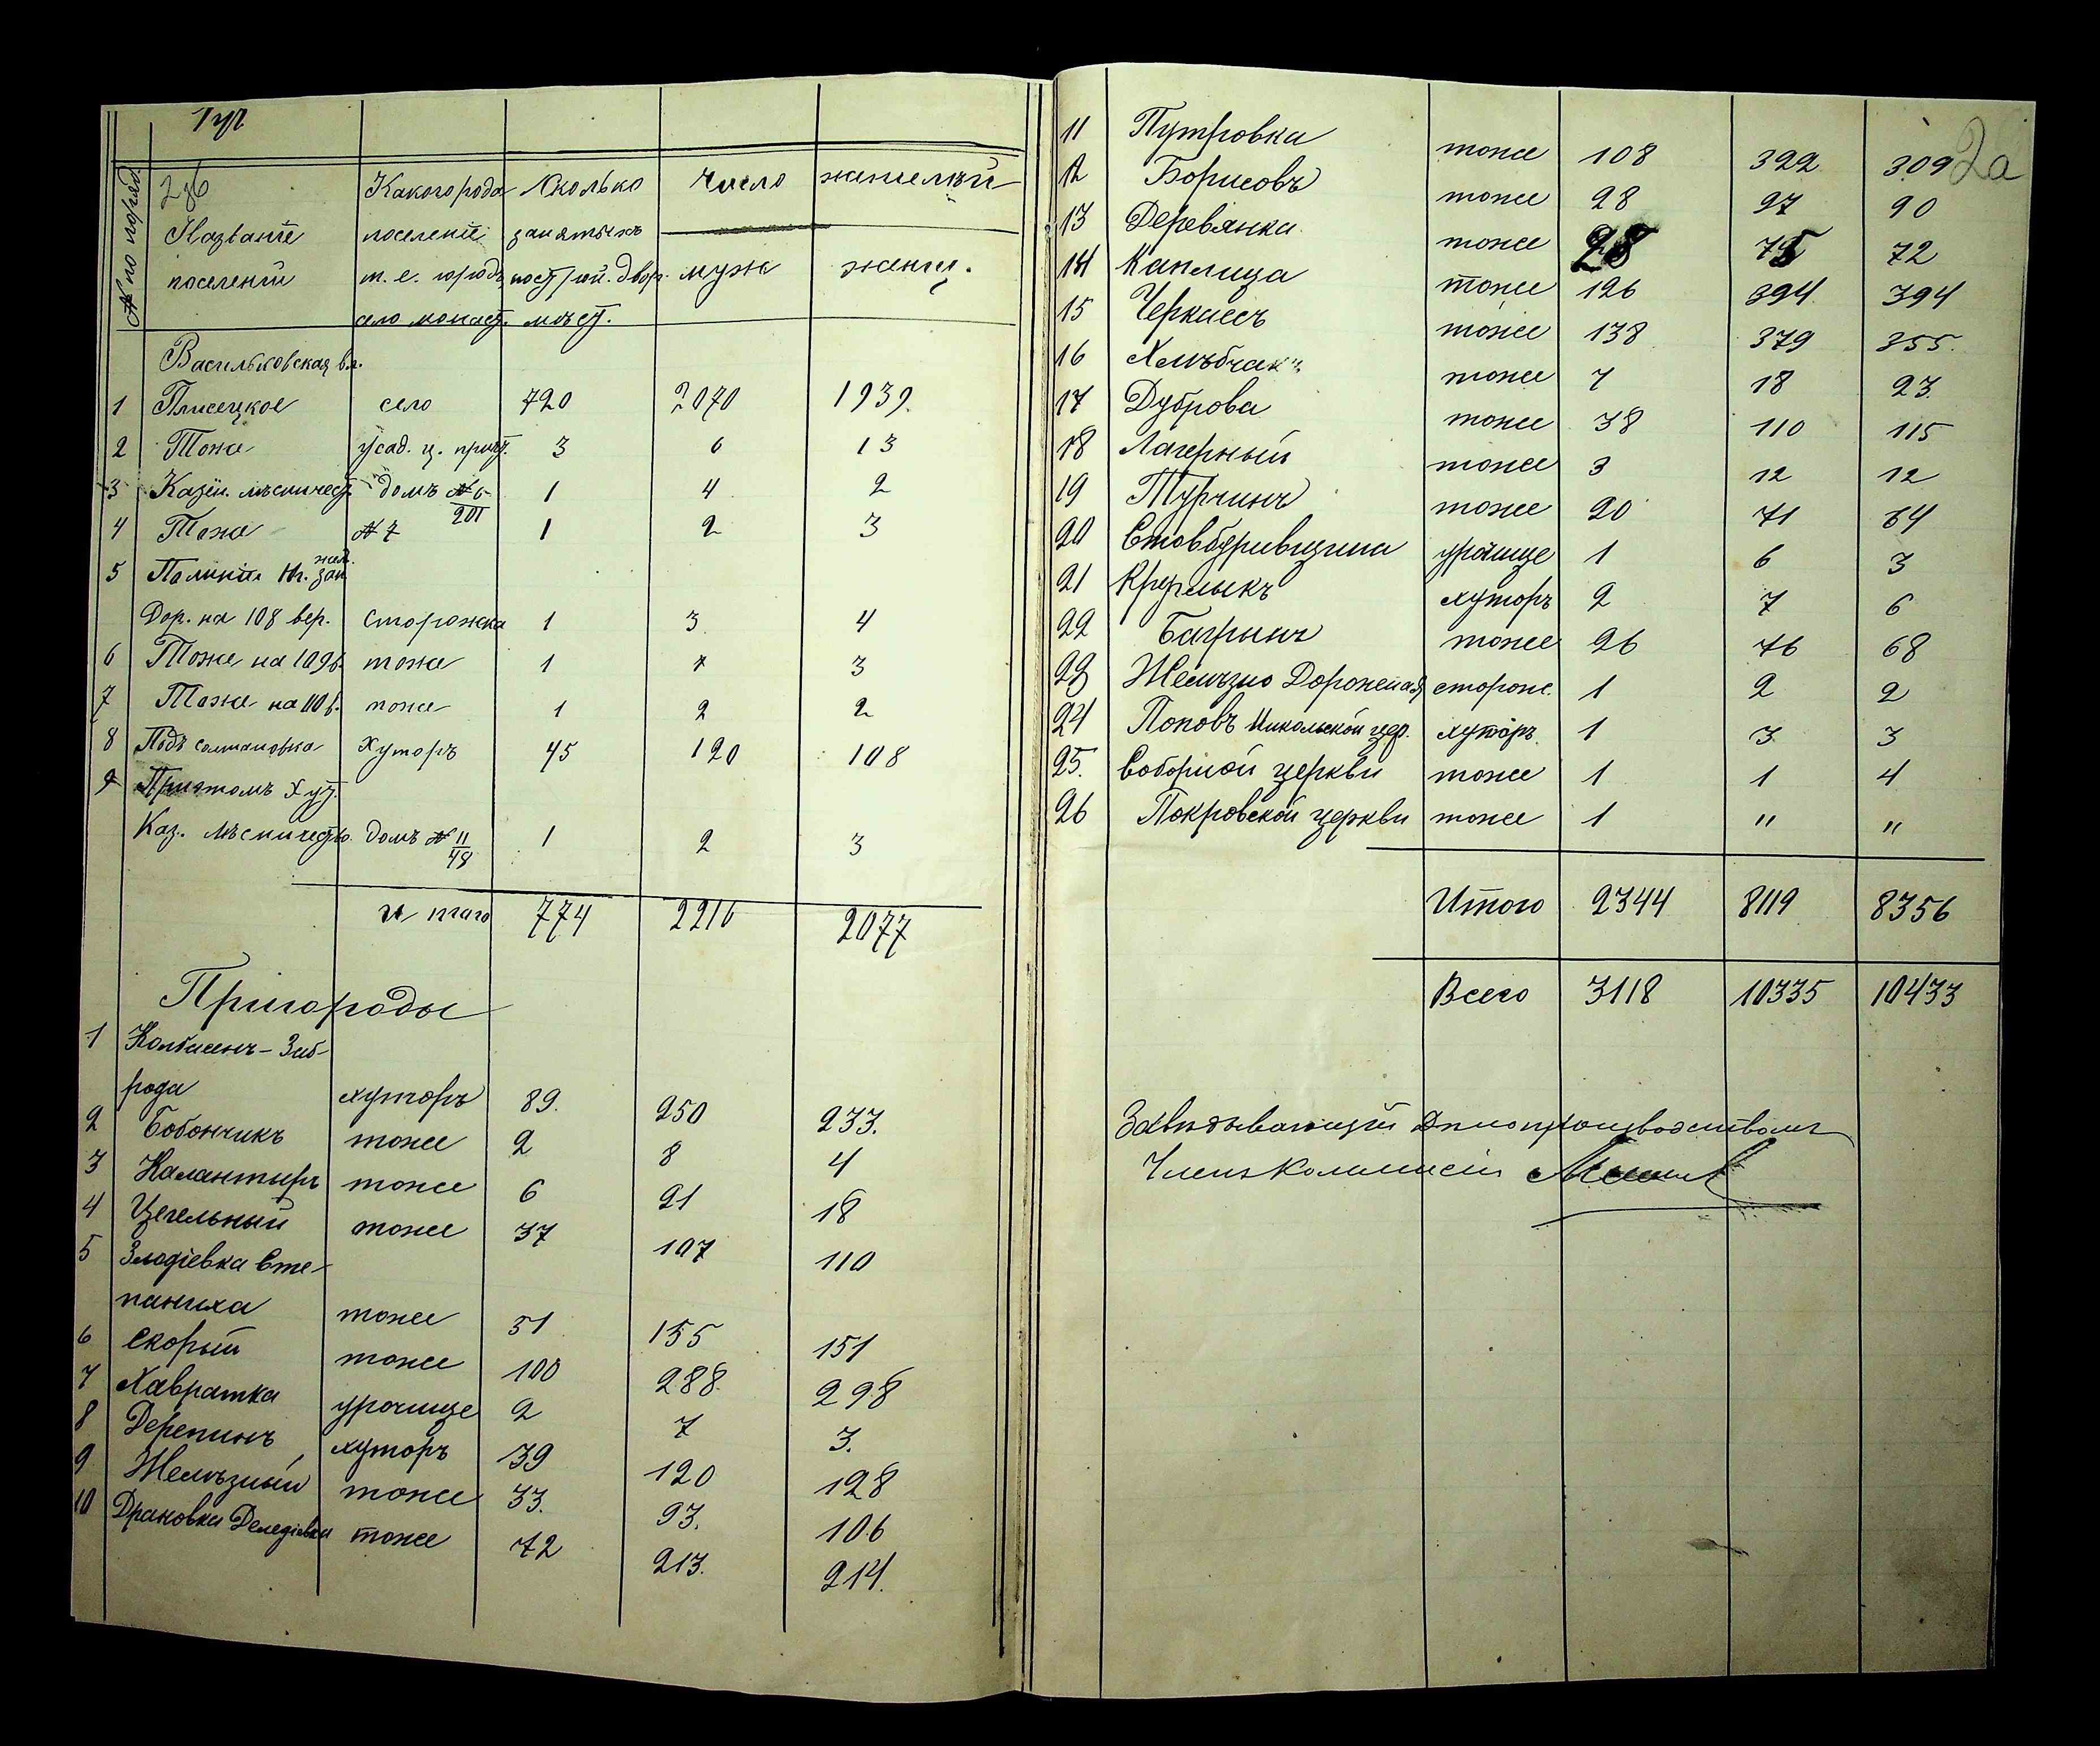 236
2а
№ по поряд.
Названіе поселеній
Какого рода поселеніе т. е. городъ, село монаст.
Сколько занятыхъ построй. двор. мѣст.
Число жителей
муж
женщ.
Васильковская вл.
1 Плисецкое село 720 2070 1939.
2 Тоже усад. ц. прич. 3 6 13
3 Казен. лѣсничест. домъ № 6/201 1 4 2
4 Тоже № 7 1 2 3
5 Полиніи Юг. зап. жел.
Дор. на 108 вер. Сторожка 1 3 4
6 Тоже на 109 в. тоже 1 7 3
7 Тоже на 110 в. тоже 1 2 2
8 Подъ Солтановка Хуторъ 45 120 108
9 Приэтомъ Хут.
Каз. Лѣсничество. домъ № 11/48 1 2 3
Итаго 774 2216 2077
Пригороды
1 Колбасенъ-Заб-
рода хуторъ 89. 250 233.
2 Бобончикъ тоже 2 8 4
3 Калантырь тоже 6 21 18
4 Цегельный тоже 37 107 110
5 Злодіевка Сте-
паниха тоже 51 155 151
6 Скорый тоже 100 288 298
7 Хавратка урочище 2 7 3.
8 Дерепинъ хуторъ 39 120 128
9 Желѣзный тоже 33. 93. 106
10 Драновка тоже 72 213. 214.
11 Путровка тоже 108 392 309
12 Борисовъ тоже 28 97 90
13 Деревянка тоже 28 75 72
14 Каплица тоже 126 394 394
15 Черкасъ тоже 138 379 355.
16 тоже 7 18 23.
17 Дуброва тоже 38 110 115
18 Лагерный тоже 3 12 12
19 Турчинъ тоже 20 71 64
20 Стовбуривщина урочище 1 6 3
21 хуторъ 2 7 6
22 Багринъ тоже 26 76 68
23 Желѣзно Дорожная сторож. 1 2 2
24 Поповъ Никольской цер. хуторъ 1 3 3
25. Соборной церкви тоже 1 1 4
26 Покровской церкви тоже 1 " "
Итого 2344 8119 8356
Всего 3118 10335 10433
Завѣдывающій Дѣлопроизводствомъ
Членъ Коммисіи